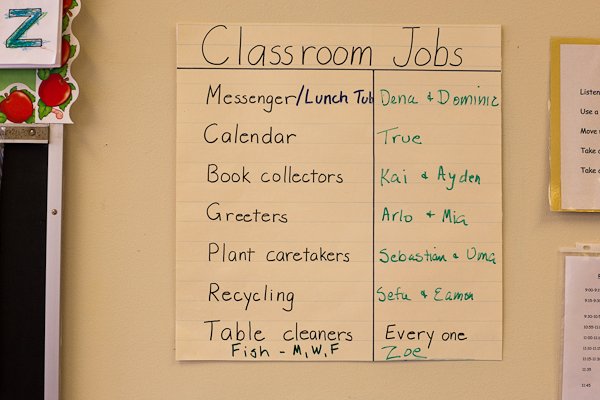 Z
Classroom Jobs
Messenger/Lunch Tub Dena & Dominic
Calendar True
Book collectors Kai & Ayden
Greeters Arlo & Mia
Plant caretakers Sebastian & Uma
Recycling Sefu & Eamon
Table cleaners Every one
Fish - M, W, F Zoe
Listen
Use a
Move
Take
Take